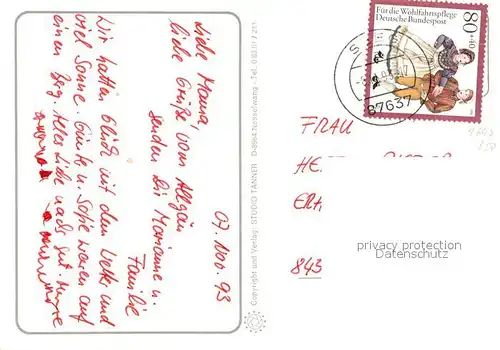 07. Nov. 93
Liebe Mama,
liebe Grüße vom Allgäu
senden Dir Marianne u.
Familie
Wir hatten Glück mit dem Wetter und
viel Sonne. Günter u. Sofie waren auf
einem Berg. Alles Liebe und gut
Copyright und Verlag: STUDIO TANNER D-8964 Nesselwang - Tel. 0 83 61 / 211
Für die Wohlfahrtspflege
Deutsche Bundespost
80
+40
87637
FRAU
HE
ERA
843
privacy protection
Datenschutz